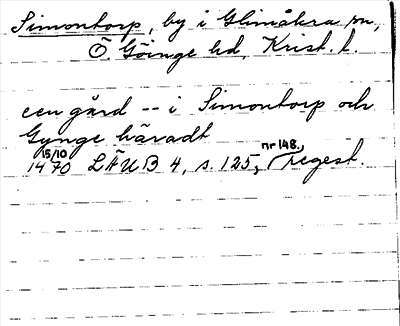 Simontorp, by i Glimåkra sn,
Ö. Göinge hd, Krist. l.
een gård -- i Simontorp och
Gynge häradt
15/10 1470 LÄUB 4, s. 125, nr 148, regest.